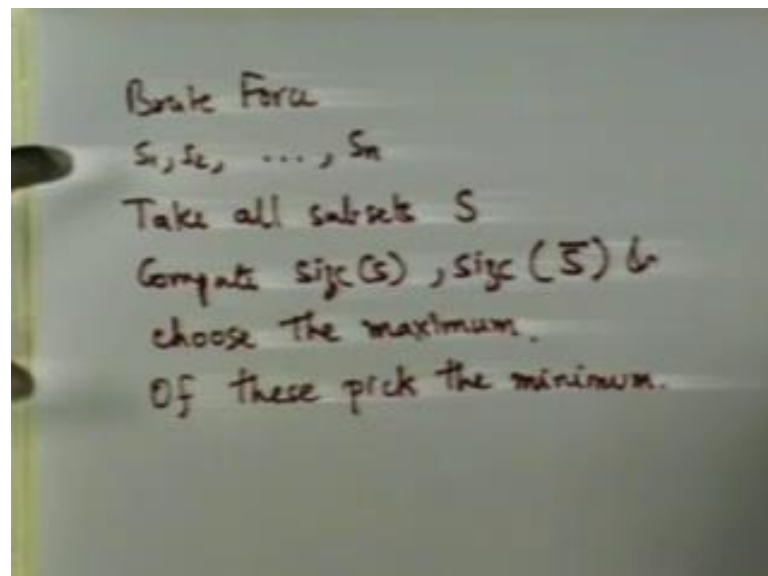 Brute Force
S₁, S₂, ..., Sn
Take all subsets S
Compute size(S), size(S̅) &
choose the maximum.
Of these pick the minimum.